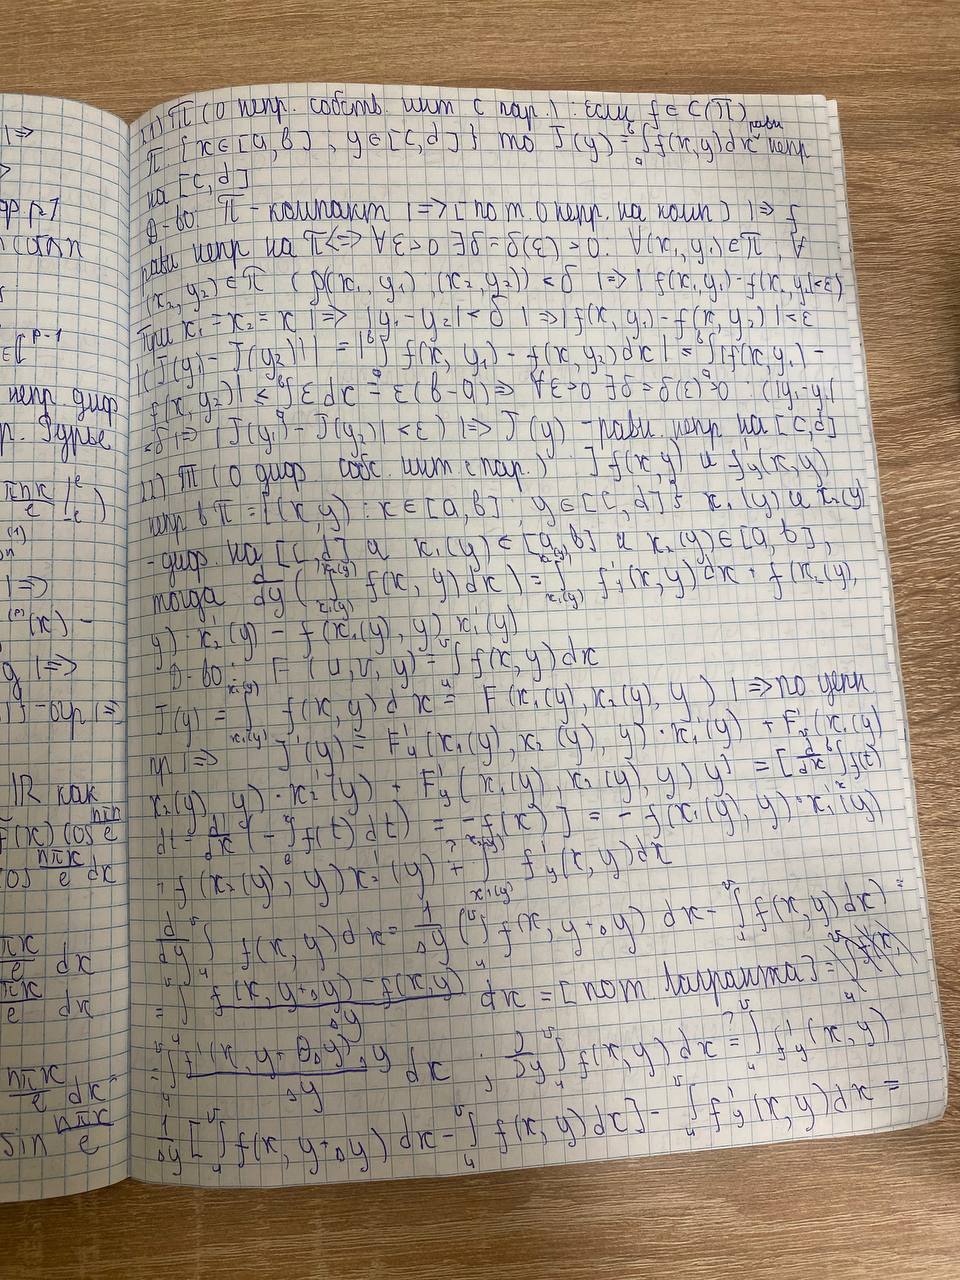 21) Т (О непр. собств. инт с пар.): Если f ∈ C(П),
П: {x∈[a,b], y∈[c,d]} то J(y) = ∫ₐᵇ f(x,y)dx равн непр
на [c,d]
Д-во: П - компакт |=> [по т. О непр. на комп] |=> f
равн непр на П <=> ∀ε>0 ∃δ=δ(ε)>0: ∀(x₁,y₁)∈П, ∀
(x₂,y₂)∈П (ρ(x₁,y₁),(x₂,y₂)) < δ |=> |f(x₁,y₁)-f(x₂,y₂)|<ε)
При x₁=x₂=x |=> |y₁-y₂|<δ |=> |f(x,y₁)-f(x,y₂)|<ε
|(J(y₁)-J(y₂))| = |∫ₐᵇ f(x,y₁)-f(x,y₂)dx| = ∫ₐᵇ|f(x,y₁)-
f(x,y₂)| ≤ ∫ₐᵇ ε dx = ε(b-a) => ∀ε>0 ∃δ=δ(ε)>0: (|y₁-y₂|
<δ |=> |J(y₁)-J(y₂)|<ε) |=> J(y) - равн. непр на [c,d]
22) Т (О диф собс. инт с пар.) ] f(x,y) и f'y(x,y)
непр в П = {(x,y): x∈[a,b]; y∈[c,d]} x₁(y) и x₂(y)
- диф. на [c,d] и x₁(y)∈[a,b] и x₂(y)∈[a,b],
тогда d/dy (∫_{x₁(y)}^{x₂(y)} f(x,y)dx) = ∫_{x₁(y)}^{x₂(y)} f'y(x,y)dx + f(x₂(y),
y)·x₂'(y) - f(x₁(y),y)x₁'(y)
Д-во: F(u,v,y) = ∫ᵤᵛ f(x,y)dx
J(y) = ∫_{x₁(y)}^{x₂(y)} f(x,y)dx = F(x₁(y),x₂(y),y) |=> по цепн
пр |=> J'(y) = F'u(x₁(y),x₂(y),y)·x₁'(y) + F'v(x₁(y)
x₂(y),y)·x₂'(y) + F'y(x₁(y),x₂(y),y)y' = [d/dx ∫ₓᵇ f(t)
dt = d/dx(-∫ᵇˣ f(t)dt) = -f(x)] = -f(x₁(y),y)·x₁'(y)
+ f(x₂(y),y)x₂'(y) + ∫_{x₁(y)}^{x₂(y)} f'y(x,y)dx
d/dy ∫ᵤᵛ f(x,y)dx = 1/Δy (∫ᵤᵛ f(x,y+Δy)dx - ∫ᵤᵛ f(x,y)dx) =
= ∫ᵤᵛ (f(x,y+Δy)-f(x,y))/Δy dx = [по т Лагранжа] =
= ∫ᵤᵛ f'(x,y+θΔy)Δy/Δy dx ; ∂/∂y ∫ᵤᵛ f(x,y)dx =? ∫ᵤᵛ f'y(x,y)
1/Δy [∫ᵤᵛ f(x,y+Δy)dx - ∫ᵤᵛ f(x,y)dx] - ∫ᵤᵛ f'y(x,y)dx =